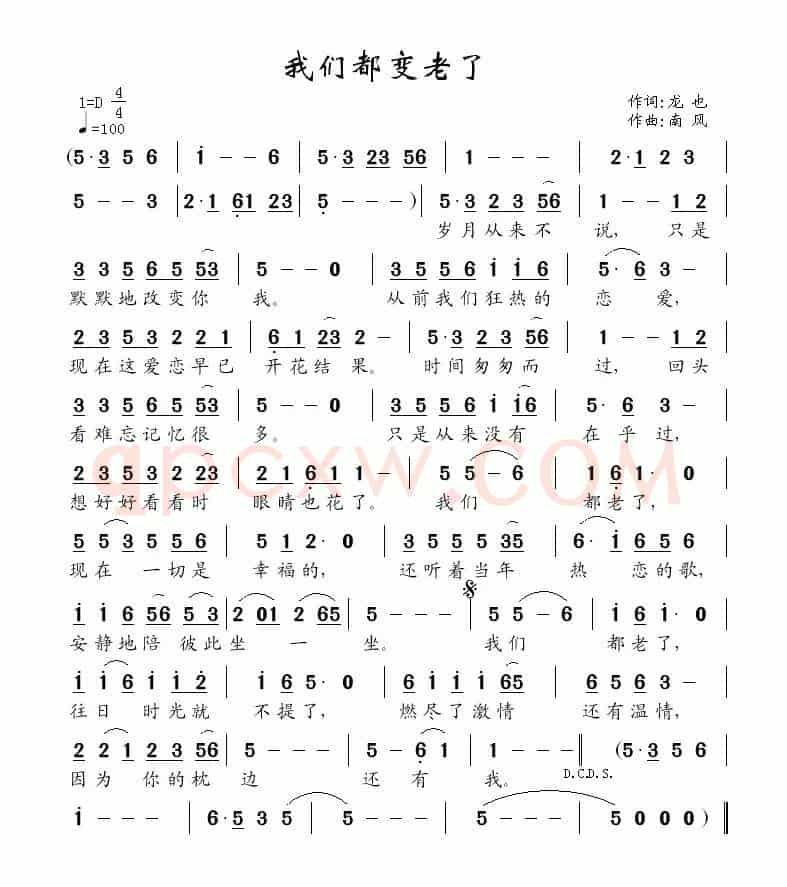 我们都变老了
1=D 4/4
♩=100
作词:龙 也
作曲:南 风
(5·3 5 6 | i - - 6 | 5·3 23 56 | 1 - - - | 2·1 2 3 |
5 - - 3 | 2·1 61 23 | 5 - - -) | 5·3 2 3 56 | 1 - - 1 2 |
岁月从来不 说, 只是
3 3 5 6 5 53 | 5 - - 0 | 3 5 5 6 i i 6 | 5· 6 3 - |
默默地改变你 我。 从前我们狂热的 恋 爱,
2 3 5 3 2 2 1 | 6 1 23 2 - | 5·3 2 3 56 | 1 - - 1 2 |
现在这爱恋早已 开花结 果。 时间匆匆而 过, 回头
3 3 5 6 5 53 | 5 - - 0 | 3 5 5 6 i i6 | 5· 6 3 - |
看难忘记忆很 多。 只是从来没有 在 乎过,
qpcxw.com
2 3 5 3 2 23 | 2 1 6 2 1 - | 5 5 - 6 | 1 6 1· 0 |
想好好看看时 眼睛也花了。 我们 都老了,
5 5 3 5 5 6 | 5 1 2· 0 | 3 5 5 5 35 | 6· i 6 5 6 |
现在 一切是 幸福的, 还听着当年 热 恋的歌,
i i 6 56 5 3 | 2 01 2 65 | 5 - - - | 5 5 - 6 | i 6 i· 0 |
安静地陪 彼此坐 一 坐。 我们 都老了,
i i 6 i i 2 | i 6 5· 0 | 6 i i i 65 | 6 5 6 3 |
往日 时光就 不提了, 燃尽了激情 还有温情,
2 2 1 2 3 56 | 5 - - - | 5 - 6 1 | 1 - - - ‖ (5·3 5 6 |
因为 你的枕 边 还 有 我。 D.C.D.S.
i - - - | 6·5 3 5 | 5 - - - | 5 - - - | 5 0 0 0) ‖